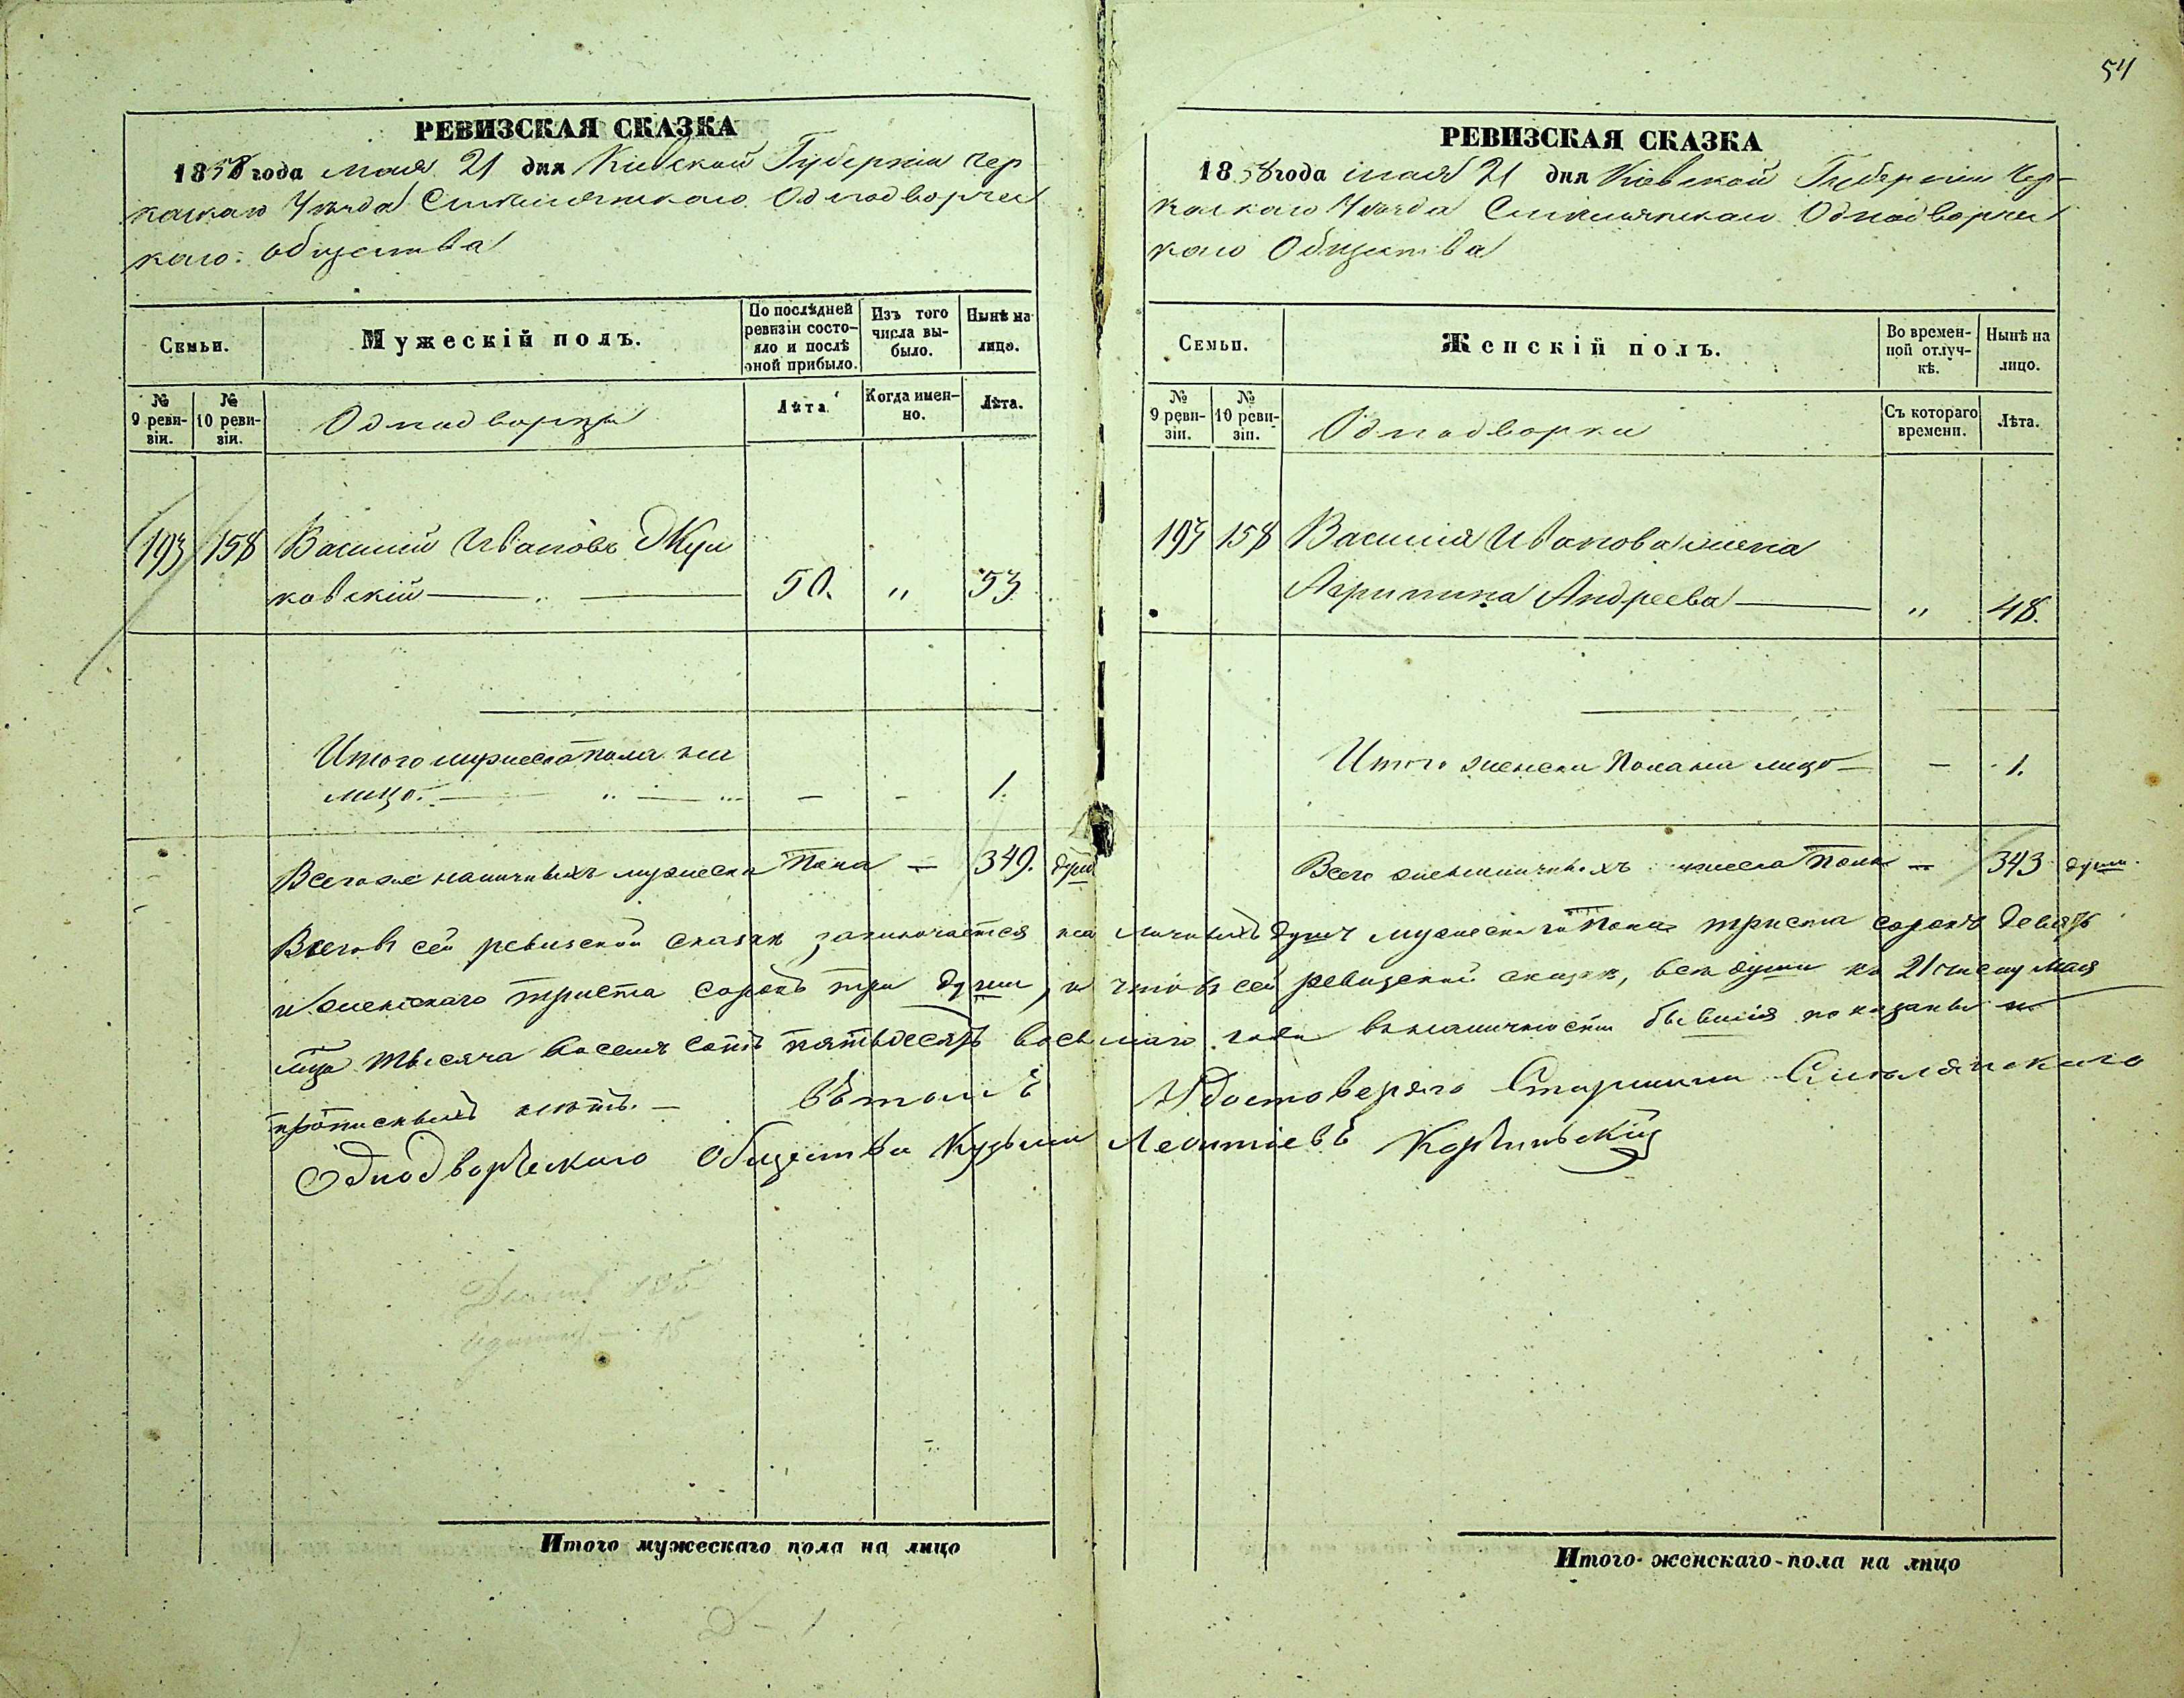 54
РЕВИЗСКАЯ СКАЗКА
1858 года мая 21 дня Киевской Губерніи Чер
каскаго Уѣзда Смѣлянскаго Однодворчес
каго общества
Семьи.
Мужескій полъ.
По послѣдней ревизіи состояло и послѣ оной прибыло.
Изъ того числа выбыло.
Нынѣ на лицо.
№ 9 ревизіи.
№ 10 ревизіи.
Однодворцы
Лѣта
Когда именно.
Лѣта.
193 158 Василий Ивановъ Жул
ковскій 50. " 53
Итого мужеска пола на
лицо. - - 1.
Всего же наличныхъ мужеска Пола — 349. душ
РЕВИЗСКАЯ СКАЗКА
1858 года мая 21 дня Кіевской Губерніи Чер-
каскаго Уѣзда Смѣлянскаго Однодворчес
каго Общества
Семьи.
Женскій полъ.
Во временной отлучкѣ.
Нынѣ на лицо.
№ 9 ревизіи.
№ 10 ревизіи.
Однодворки
Съ котораго времени.
Лѣта.
193 158 Василія Иванова жена
Агрипина Андреева " 48.
Итого женска Пола на лицо — - 1.
Всего Пола — 343 душ.
Всего въ сей ревизской сказкѣ заключается на личныхъ душъ мужескаго Пола триста сорокъ девять
и женскаго триста сорокъ три души, и что въ сей ревизской сказкѣ, всѣ души къ 21 числу Мая
мца тысяча восемь сотъ пятьдесятъ восьмаго года въ наличности бывшія показаны и
прописныхъ нѣтъ. — Вѣтомъ Удостоверяю Старшина Смѣлянского
Однодворческаго Общества Кузьма Леонтіевъ
Итого мужескаго пола на лицо
Итого женскаго пола на лицо